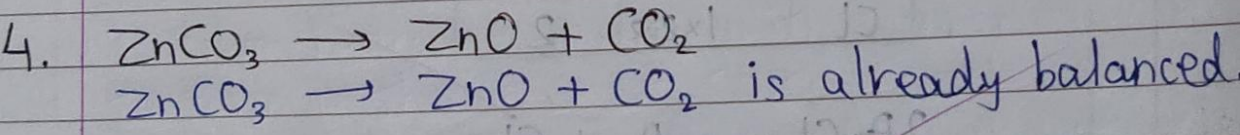 4. ZnCO₃ → ZnO + CO₂
ZnCO₃ → ZnO + CO₂ is already balanced.